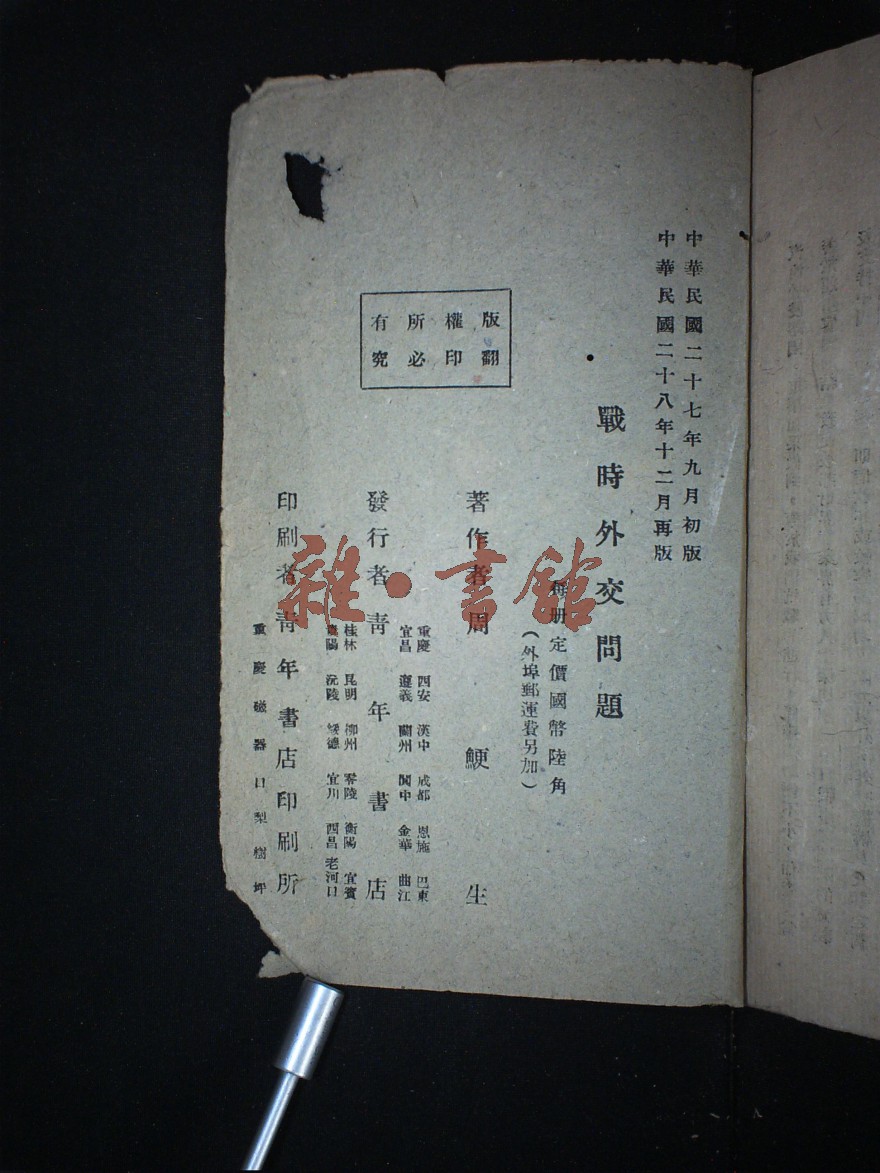 中華民國二十七年九月初版
中華民國二十八年十二月再版
戰時外交問題
每册定價國幣陸角
（外埠郵運費另加）
版權所有
翻印必究
著作者周鯁生
重慶 西安 漢中 成都 恩施 巴東
宜昌 遵義 蘭州 閬中 金華 曲江
發行者青年書店
桂林 昆明 柳州 零陵 衡陽 宜賓
沅陵 綏德 宜川 西昌 老河口
印刷者青年書店印刷所
重慶磁器口梨樹坪
雜·書館